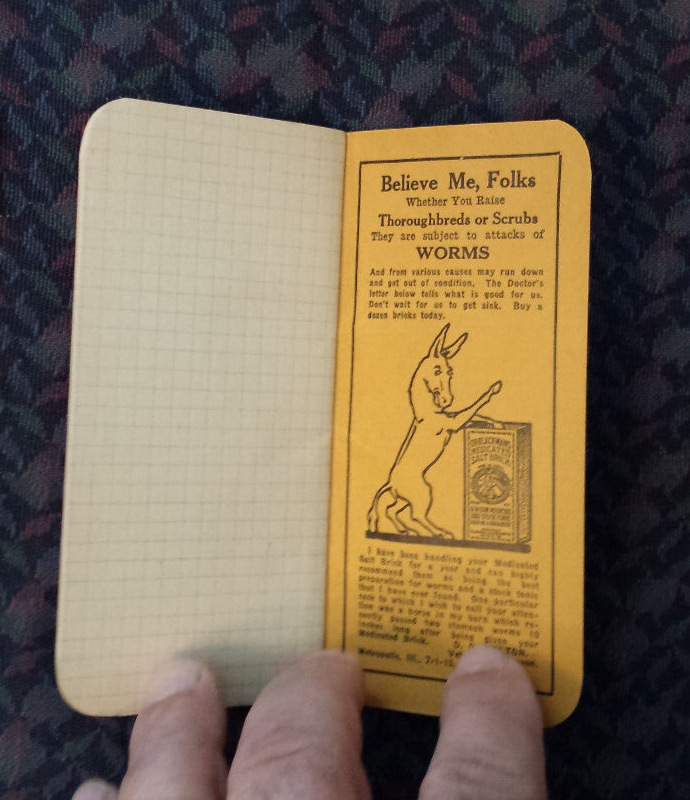 Believe Me, Folks
Whether You Raise
Thoroughbreds or Scrubs
They are subject to attacks of
WORMS
And from various causes may run down
and get out of condition. The Doctor's
letter below tells what is good for us.
Don't wait for us to get sick. Buy a
dozen bricks today.
DR. BLACKMAN'S
MEDICATED
SALT BRICK
I have been handling your Medicated
Salt Brick for a year and can highly
recommend them as being the best
preparation for worms and a stock tonic
that I have ever found. One particular
case to which I wish to call your atten-
tion was a horse in my barn which re-
cently passed two stomach worms 10
inches long after being given your
Medicated Brick.
D.
Metropolis, Ill., 7-1-